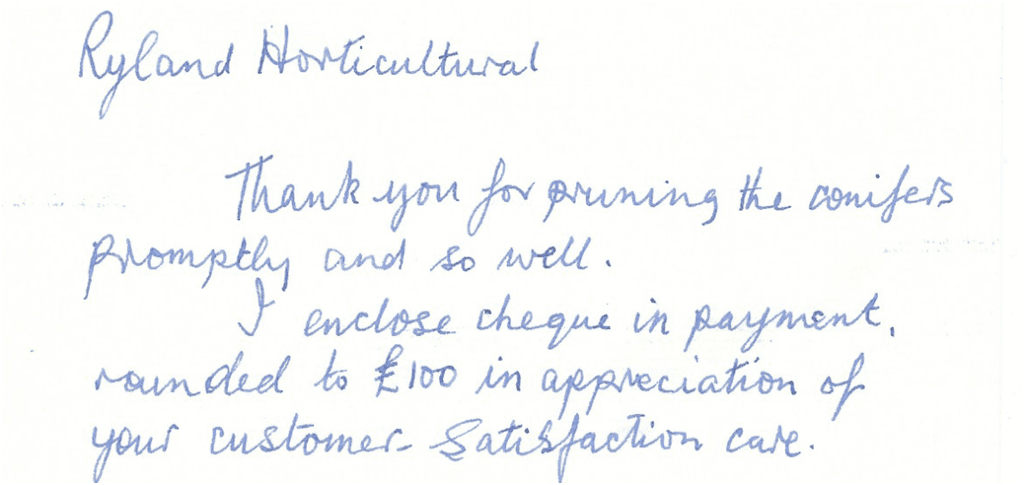 Ryland Horticultural
Thank you for pruning the conifers
promptly and so well.
I enclose cheque in payment,
rounded to £100 in appreciation of
your customer satisfaction care.